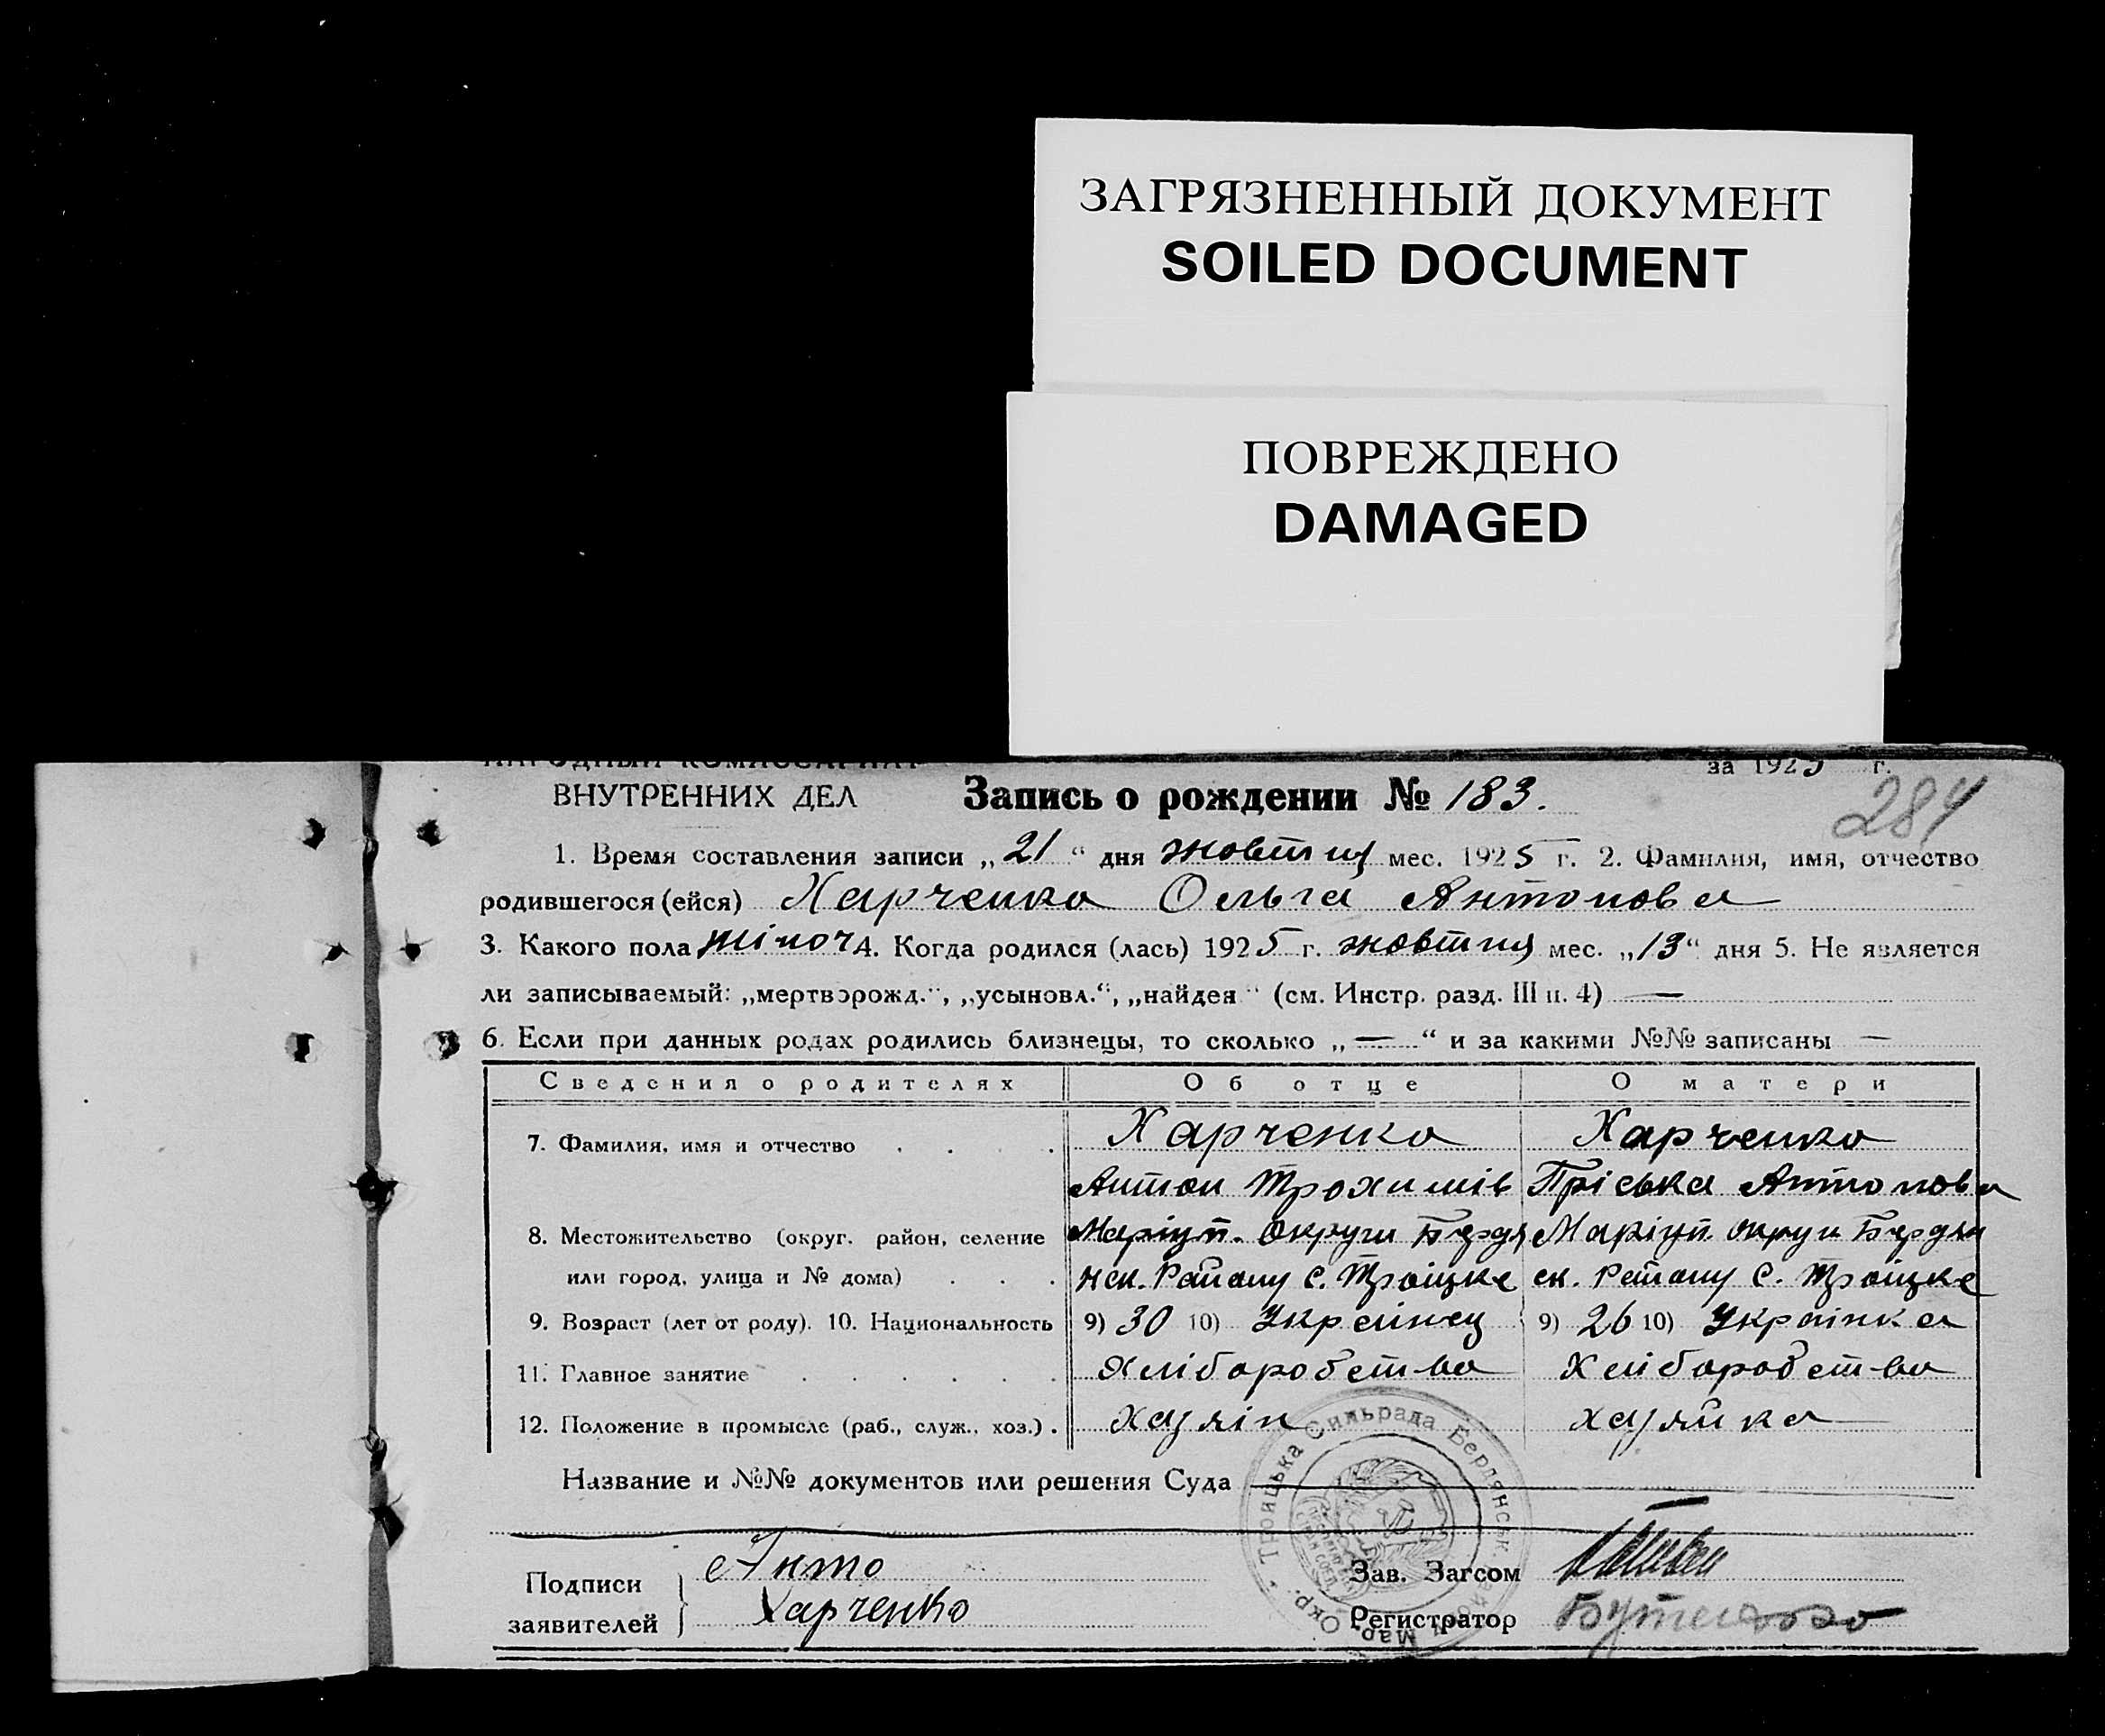 ЗАГРЯЗНЕННЫЙ ДОКУМЕНТ
SOILED DOCUMENT
ПОВРЕЖДЕНО
DAMAGED
за 1925 г.
ВНУТРЕННИХ ДЕЛ Запись о рождении № 183.
284
1. Время составления записи „21“ дня жовтня мес. 1925 г. 2. Фамилия, имя, отчество
родившегося (ейся) Харченко Ольга Антонова
3. Какого пола жіноч 4. Когда родился (лась) 1925 г. жовтня мес. „13“ дня 5. Не является
ли записываемый: „мертворожд.“, „усыновл.“, „найден“ (см. Инстр. разд. III п. 4) —
6. Если при данных родах родились близнецы, то сколько „—“ и за какими №№ записаны —
Сведения о родителях Об отце О матери
7. Фамилия, имя и отчество . . . . Харченко Харченко
Антон Трохимів Пріська Антонова
8. Местожительство (округ. район, селение Маріуп. Округи Бердя Маріуп. округи Бердян
или город, улица и № дома) . . . нск. Району с. Троіцке ск. Району с. Троіцке
9. Возраст (лет от роду). 10. Национальность 9) 30 10) Украінец 9) 26 10) Украінка
11. Главное занятие . . . . . . Хліборобство Хліборобство
12. Положение в промысле (раб., служ., хоз.) . Хазяін хазяйка
Название и №№ документов или решения Суда
Троицька Сильрада Бердянськ. Мар. Окр.
Подписи заявителей Анто
Харченко
Зав. Загсом
Регистратор